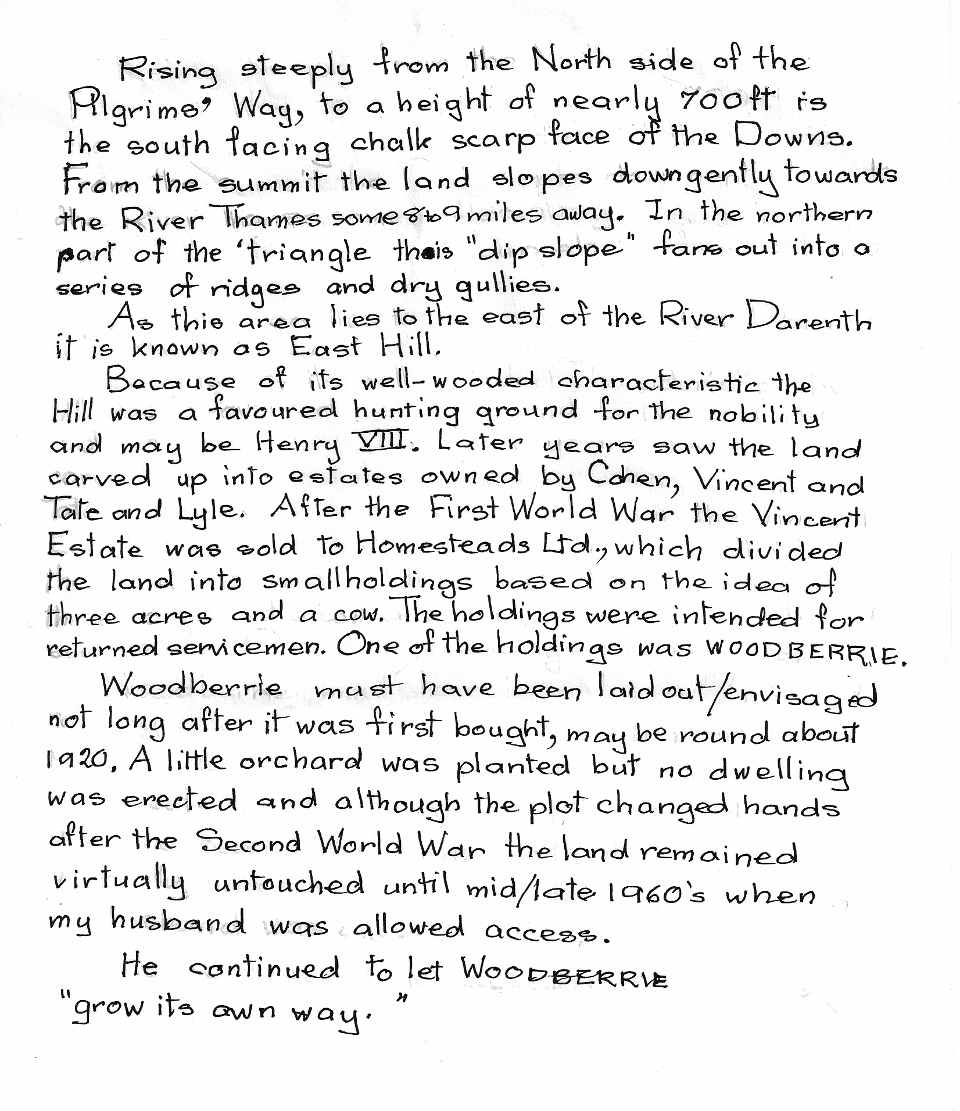 Rising steeply from the North side of the
Pilgrims' Way, to a height of nearly 700ft is
the south facing chalk scarp face of the Downs.
From the summit the land slopes down gently towards
the River Thames some 8 to 9 miles away. In the northern
part of the 'triangle this "dip slope" fans out into a
series of ridges and dry gullies.
As this area lies to the east of the River Darenth
it is known as East Hill.
Because of its well-wooded characteristic the
Hill was a favoured hunting ground for the nobility
and may be Henry VIII. Later years saw the land
carved up into estates owned by Cohen, Vincent and
Tate and Lyle. After the First World War the Vincent
Estate was sold to Homesteads Ltd., which divided
the land into smallholdings based on the idea of
three acres and a cow. The holdings were intended for
returned servicemen. One of the holdings was WOODBERRIE.
Woodberrie must have been laid out/envisaged
not long after it was first bought, may be round about
1920. A little orchard was planted but no dwelling
was erected and although the plot changed hands
after the Second World War the land remained
virtually untouched until mid/late 1960's when
my husband was allowed access.
He continued to let WOODBERRIE
"grow its own way."